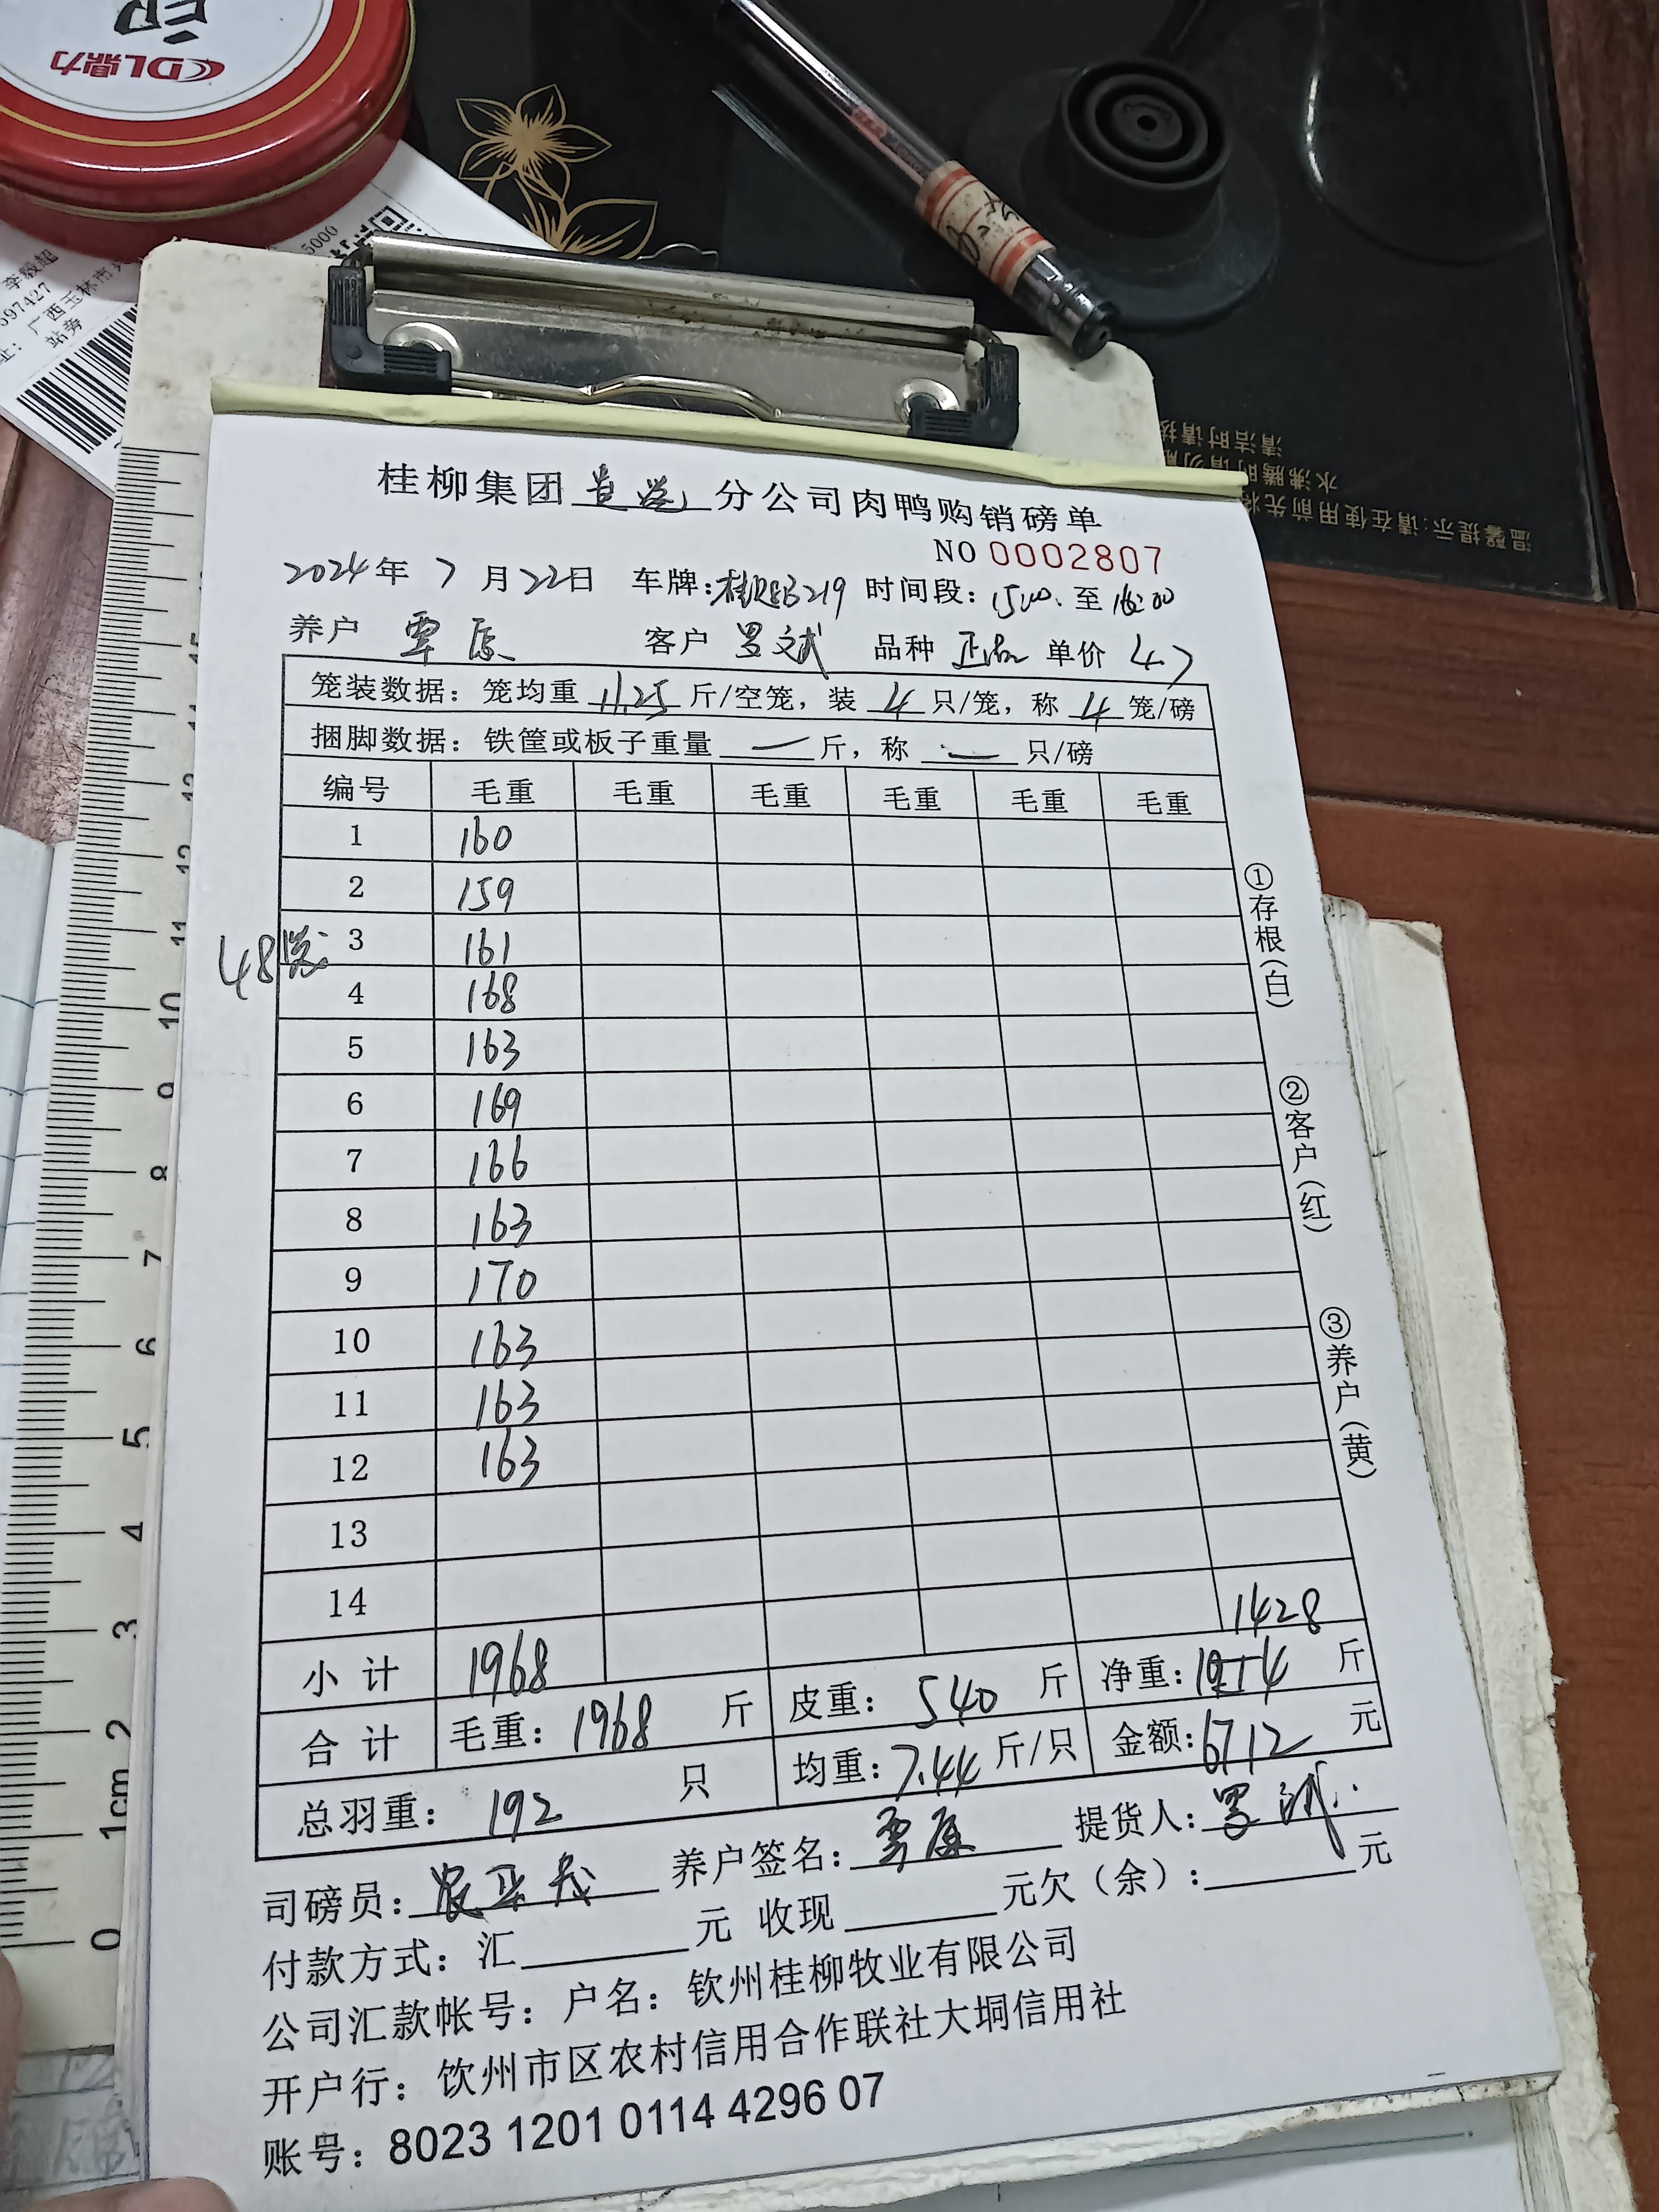 印
CDL鼎力
5000
李毅超
597427
广西玉林市兴
站旁
清洁时请按
水沸腾时请勿
温馨提示:请在使用前先将
桂柳集团 分公司肉鸭购销磅单
NO 0002807
2024年 7月22日 车牌: 219 时间段: 15:00 至 16:00
养户 覃 客户 罗文斌 品种 正品 单价 4.7
笼装数据: 笼均重 11.25 斤/空笼, 装 4 只/笼, 称 4 笼/磅
捆脚数据: 铁筐或板子重量 — 斤, 称 — 只/磅
编号 毛重 毛重 毛重 毛重 毛重 毛重
1 160
2 159
48笼
3 161
4 168
5 163
6 169
7 166
8 163
9 170
10 163
11 163
12 163
13
14
1428
小计 1968
合计 毛重: 1968 斤 皮重: 540 斤 净重: 斤
总羽重: 192 只 均重: 7.44 斤/只 金额: 6712 元
司磅员: 养户签名: 覃 提货人: 罗
付款方式: 汇 元 收现 元欠(余): 元
公司汇款帐号: 户名: 钦州桂柳牧业有限公司
开户行: 钦州市区农村信用合作联社大垌信用社
账号: 8023 1201 0114 4296 07
①存根(白)
②客户(红)
③养户(黄)